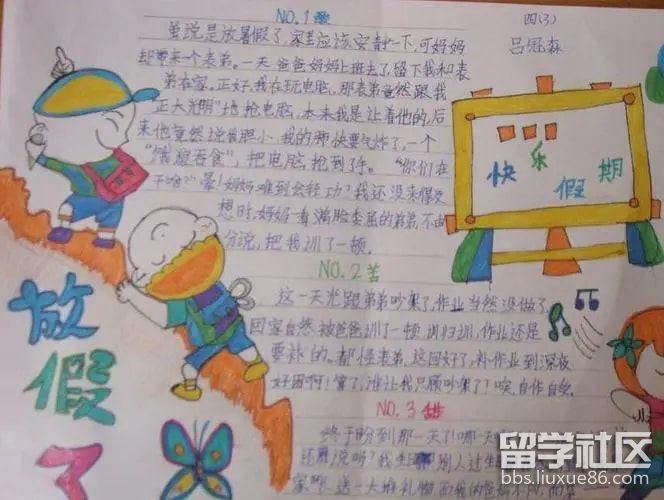 NO.1 歌
四(3)
吕冠森
虽说是放暑假了,家里应该安静一下,可妈妈
却带来个表弟。一天爸爸妈妈上班去了,留下我和表
弟在家。正好,我在玩电脑,那表弟竟然跟我
"正大光明"地抢电脑,本来我是让着他的,后
来他竟然说我胆小,我的那快要气炸了,一个
"饿狼吞食",把电脑抢到了手。"你们在
干啥?"晕!妈妈难到会轻功?我还没来得及
想时,妈妈看满脸委屈的弟弟,不由
分说,把我训了一顿。
NO.2 苦
这一天光跟弟弟吵架了,作业当然没做了
回家自然被爸爸训了一顿,训归训,作业还是
要补的。都怪表弟,这回好了,补作业到深夜
好困啊!算了,谁让我只顾吵架了?唉,自作自受
NO.3 甜
终于盼到那一天了!哪天
还用说吗?我生 别人过生
家吧,送一大堆礼物
快乐假期
放假了
留学社区
bbs.liuxue86.com